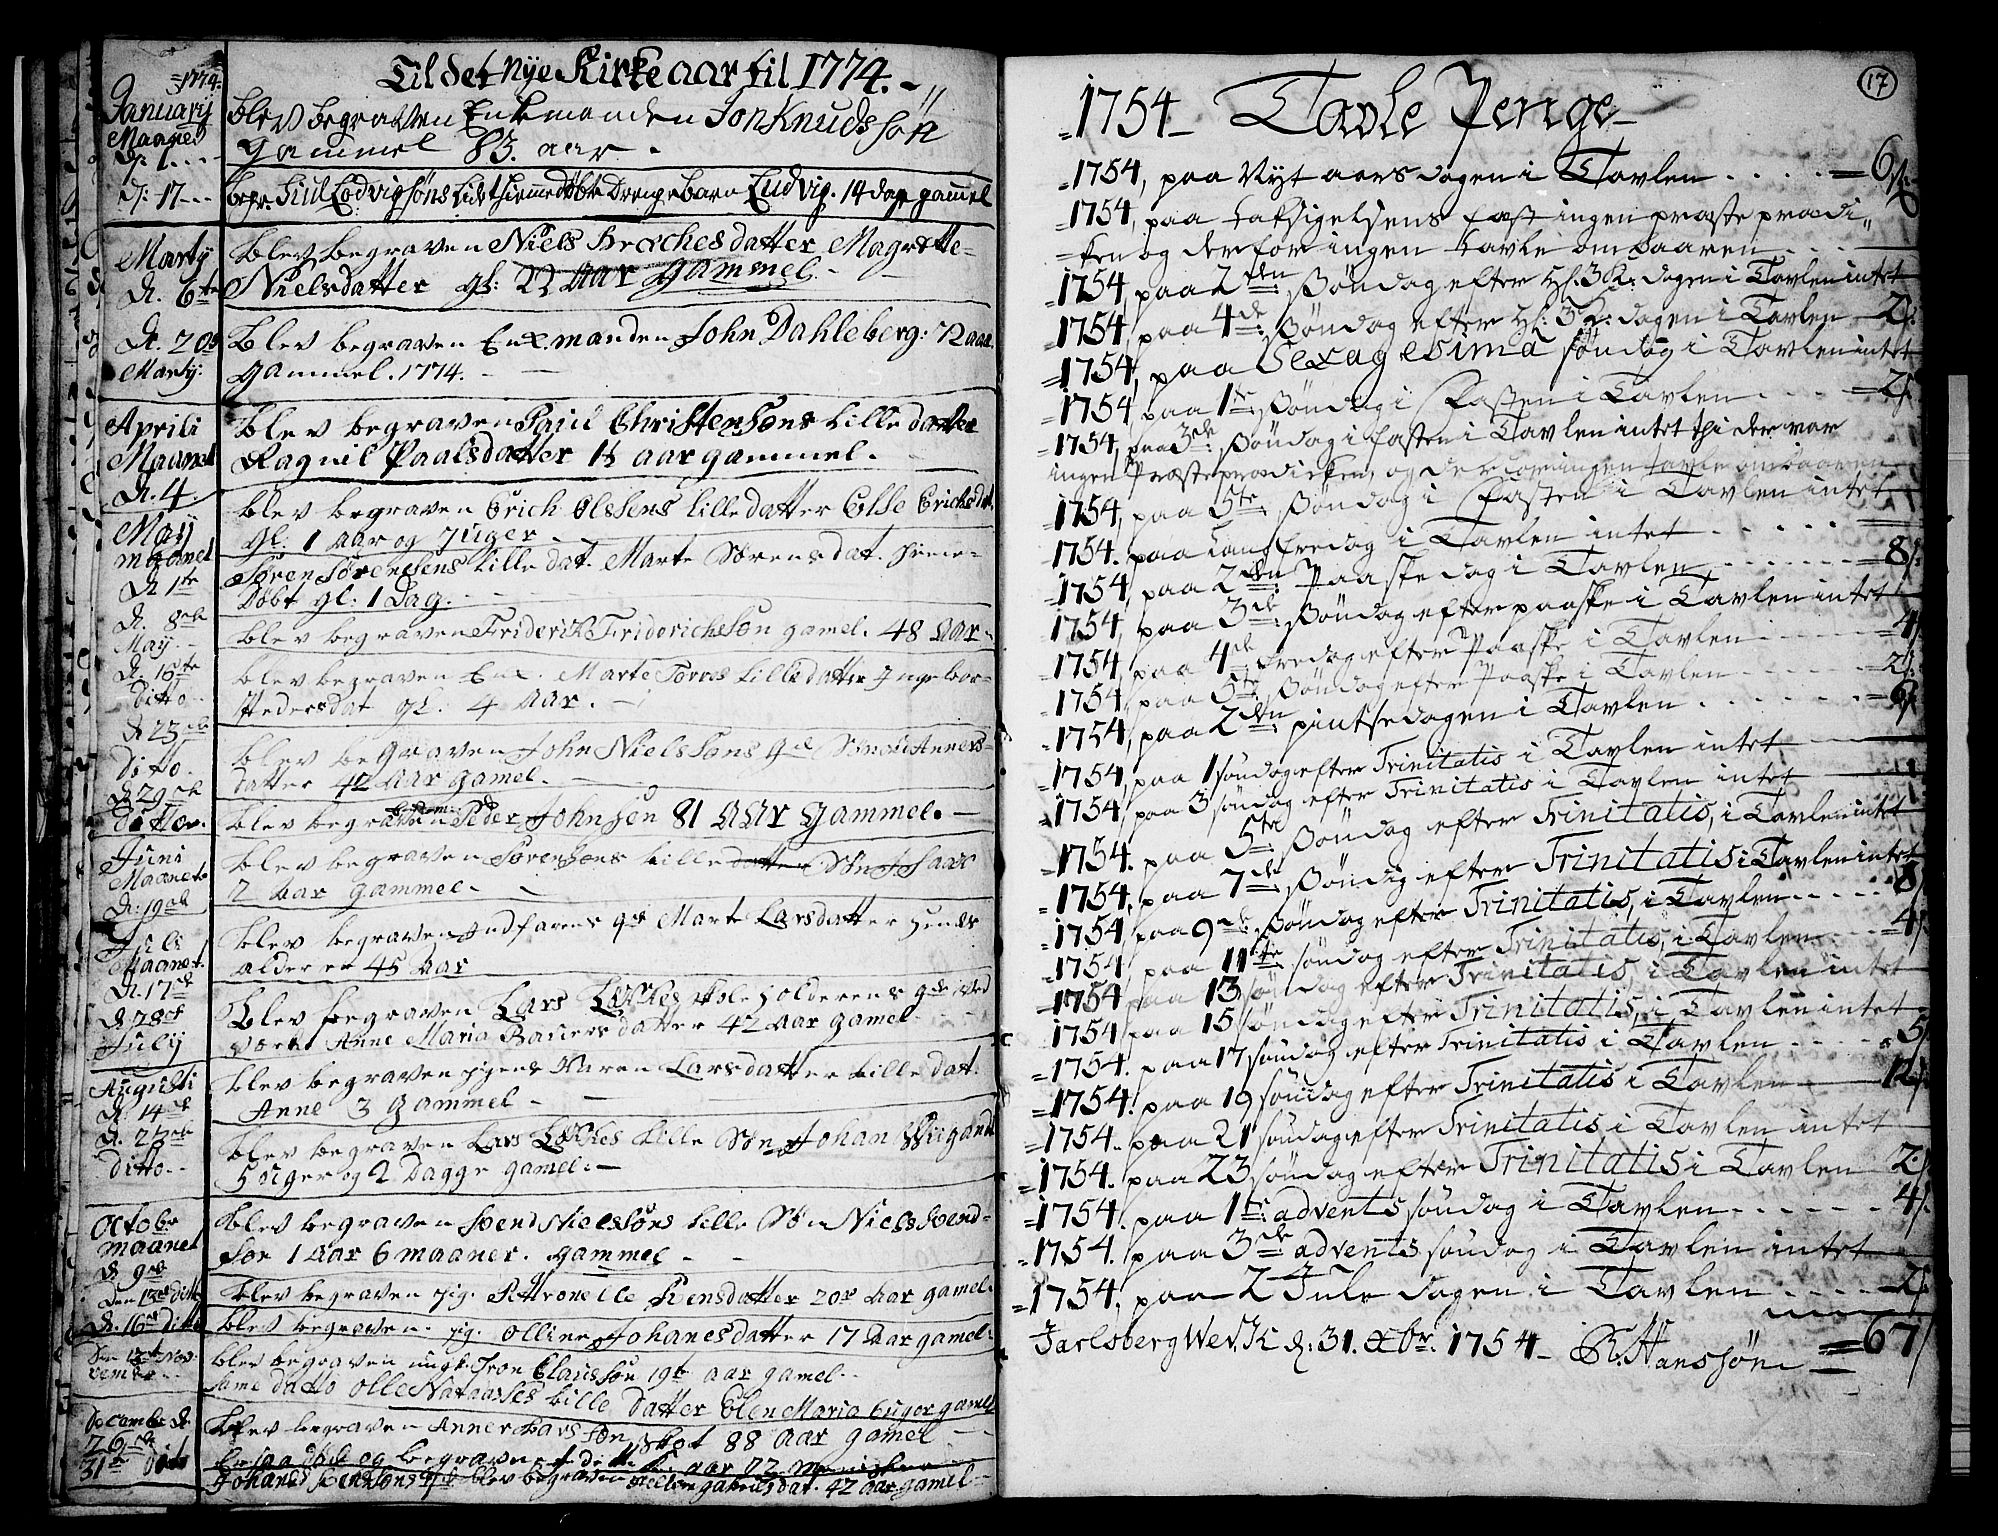 Til det Nÿe Kirke aar til 1774.
=1774.
January
Maaned
d: 1.
blev begraven Enkmanden Jon Knudssøn
gammel 83. aar.
d: 17
begr. Lodvigsøns lidet hiemmedøbte Drengebarn Ludvig. 14 dag gamel
Martÿ
d. 6te
blev begraven Niels datter Magrette
Nielsdatter gl: 22 Aar gammel.
d. 20
Martÿ:
blev begraven Enkmanden John Dahleberg: 72 aar
gammel. 1774.
Aprili
Maanet
d. 4.
blev begraven Paul Christensøns lille datter
Ragnil Paalsdatter 1½ aar gammel.
Maÿ
maanet
d. 1te
blev begraven Erich Olsens lille datter Else Erichsdat.
gl: 1 Aar og 7 uger
Søren Sørensens lille dat. Marte Sørensdat. hieme=
Døbt gl: 1 Dag.
d. 8de
Maÿ
blev begraven Friderik Friderichsøn gamel. 48 Aar
d. 16te
ditto
blev begraven Enk. Marte lille datter Ingebor
Pedersdat gl: 4 Aar.
d. 23
ditto
blev begraven John Nielssøns Anders=
datter 42 Aar gamel.
d. 29
ditto
blev begraven Peder Johnsen 81 aar gammel.
Juni
Maanet
d: 19
blev begraven Sørensøns lille datter Søn Isaac
2 Aar gammel.
Juli
Maanet.
d. 17
blev begraven Marte Larsdatter hendes
alder er 45 Aar
d. 28
Julÿ
blev begraven Lars
Anne Maria datter 42 Aar gamel
Augusti
d. 14
blev begraven pigens Karen Larsdatter lille dat.
Anne 3 gammel
d. 25
ditto
blev begraven Lars lille Søn Johan Wiigand
5 uger og 2 Dagge gamel.
Octobr
maanet
d. 9
blev begraven Svend Nielssøns lille Søn Niels Svend=
søn 1 Aar 6 maaner. gammel
Den 13 ditto
blev begraven pig. Pettronelle Jensdatter 20 Aar gamel.
d. 16 ditto
blev begraven pig. Olline Johanesdatter 17 Aar gamel.
Den 13 Nov=
vember
blev begraven ungk. Iron Claussøn 19 aar gamel.
same datto Olle lille datter Elen Maria 6 uger gamel
Decembr d.
26
blev begraven Anners Larssøn 88 aar gamel
31 dito
døde og begraven dette aar 12
Johanes Jensens blev begraven 42 aar gamel
17
=1754= Tavle Penge=
=1754, paa Nÿt aars dagen i Tavlen . . . . = 6ß:
=1754, paa Tafsigelsens fast ingen præste prædi"
=ken og derfor ingen tavle om baaren . . .
=1754, paa 2den: Søndag efter H: 3 K: dagen i Tavlen intet
=1754, paa 4de: Søndag efter H: 3 K: dagen i Tavlen 2ß:
=1754, paa Sexagesima søndag i Tavlen intet
=1754 paa 1te: Søndag i Fasten i Tavlen . . . =2ß
=1754, paa 3de: Søndag i fasten i Tavlen intet thi der var
ingen Præsteprædicken, og derfor ingen tavle om baaren
=1754, paa 5te: Søndag i Fasten i Tavlen intet
1754. paa Langfredag i Tavlen intet
=1754, paa 2den: Paaskedag i Tavlen . . . =8ß
=1754, paa 3de: Søndag efter paaske i Tavlen intet
1754, paa 4de: Fredag efter Paaske i Tavlen . . . =4
1754 paa 5te: Søndag efter Paaske i Tavlen . . . =2ß:
=1754, paa 2den: pintsedagen i Tavlen . . . . =6ß
=1754, paa 1 søndag efter Trinitatis i Tavlen intet
=1754, paa 3 søndag efter Trinitatis i Tavlen intet
=1754. paa 5te Søndag efter Trinitatis, i Tavlen intet
=1754. paa 7de: Søndag efter Trinitatis i Tavlen intet
=1754 paa 9de: Søndag efter Trinitatis, i Tavlen . . . . 8ß
=1754 paa 11te søndag efter Trinitatis, i Tavlen . . . =4ß
=1754 paa 13 søndag efter Trinitatis, i Tavlen intet
1754 paa 15 søndag efter Trinitatis, i Tavlen intet
=1754. paa 17 søndag efter Trinitatis i Tavlen . . . . 5
=1754. paa 19 søndag efter Trinitatis i Tavlen 12ß
=1754. paa 21 søndag efter Trinitatis i Tavlen intet
=1754. paa 23 søndag efter Trinitatis i Tavlen 2ß
=1754. paa 1te: advents søndag i Tavlen . . . . . 4ß.
=1754. paa 3de: advents søndag i Tavlen intet
=1754, paa 2 Jule dagen i Tavlen . . . . 2ß
Jarlsberg Werk d: 31. Xbr: 1754= R. Hanssøn =67ß